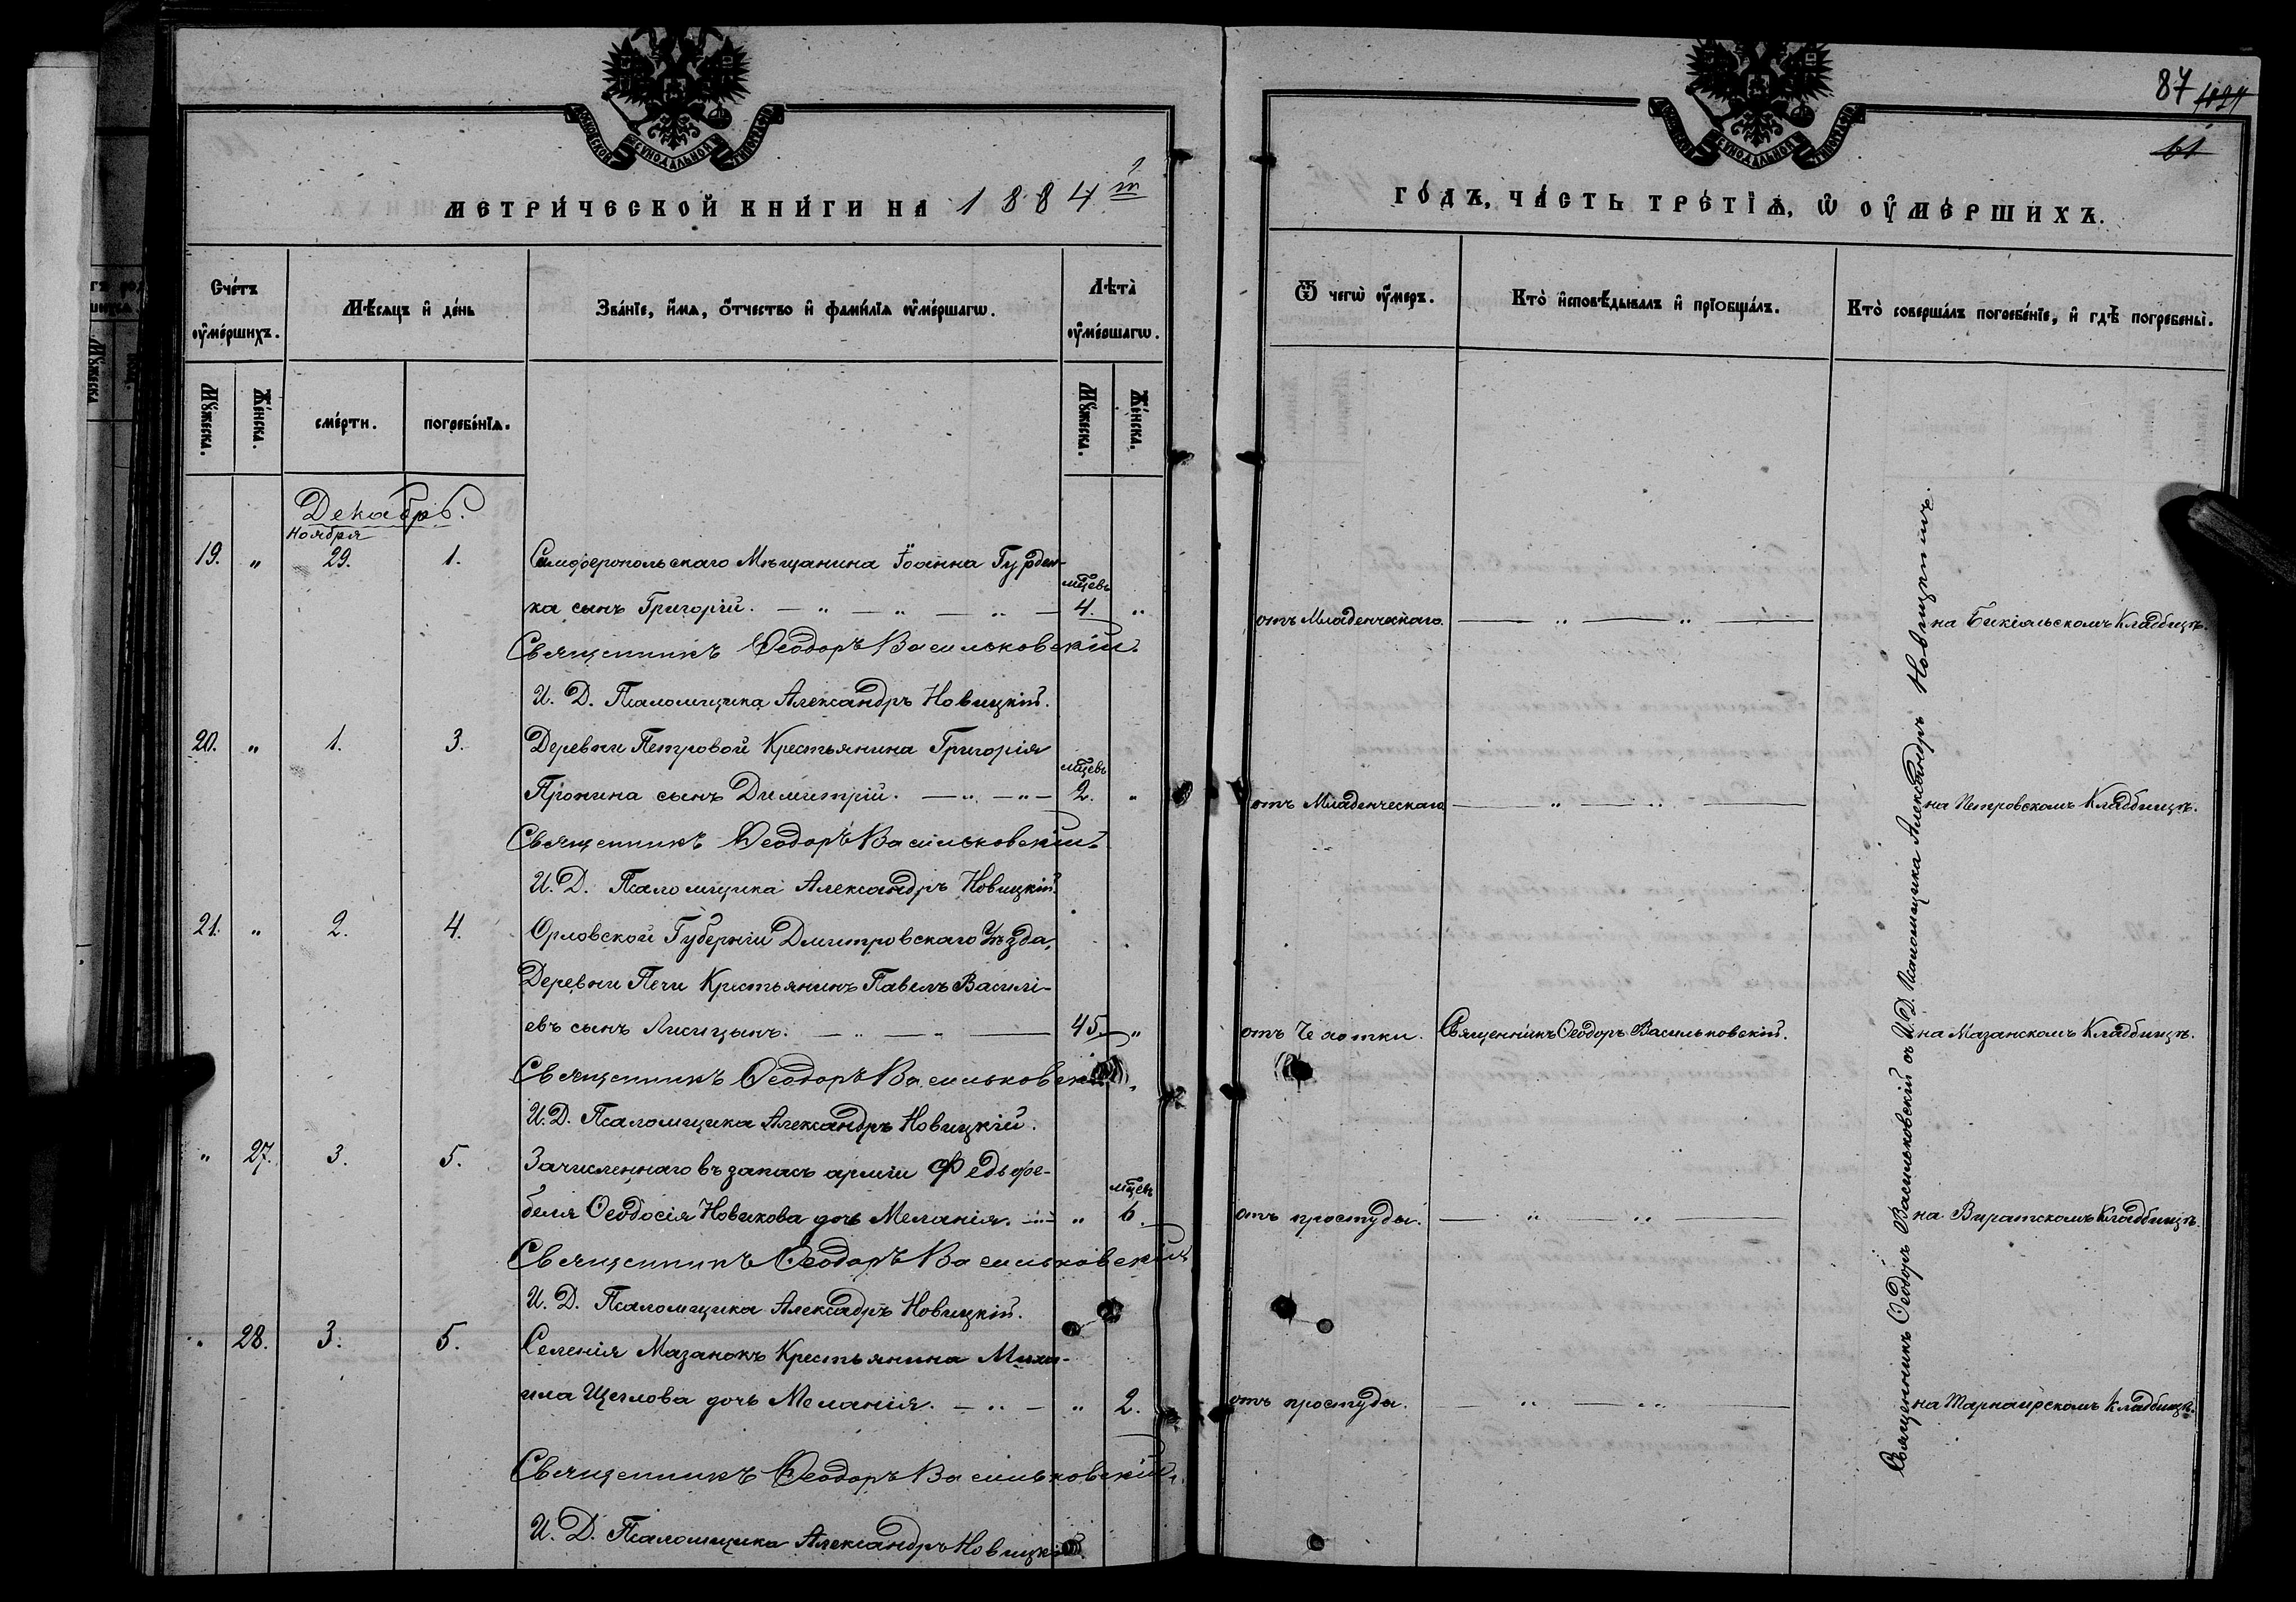 МОСКОВСКОЙ СѴНОДАЛЬНОЙ ТИПОГРАФІИ
МЕТРИ́ЧЕСКОЙ КНИ́ГИ НА 1884й
Сче́тъ ᲂу҆ме́ршихъ.
Мѣ́сяцъ и҆ де́нь
Зва́нїе, и҆́мѧ, ѻ҆́тчество и҆ фами́лїѧ ᲂу҆ме́ршагѡ.
Лѣта̀ ᲂу҆ме́ршагѡ.
Мꙋ́жеска. Же́нска. сме́рти. погребе́нїѧ. Мꙋ́жеска. Же́нска.
Декабрь.
Ноября
19. " 29. 1. Симферопольскаго Мѣщанина Іоанна Гурден-
мцевъ
ка сынъ Григорій. — " — " — " — 4. "
Священникъ Ѳеодоръ Васильковскій.
И. Д. Псаломщика Александръ Новицкій.
20. " 1. 3. Деревни Петровой Крестьянина Григорія
мцевъ
Пронина сынъ Димитрій. — " — " — 2. "
Священникъ Ѳеодоръ Васильковскій.
И. Д. Псаломщика Александръ Новицкій.
21. " 2. 4. Орловской Губерніи Дмитровскаго Уѣзда,
Деревни Печи Крестьянинъ Павелъ Василі-
евъ сынъ Лисицынъ. — " — " — 45 "
Священникъ Ѳеодоръ Васильковскій
И. Д. Псаломщика Александръ Новицкій.
" 27. 3. 5. Зачисленнаго въ запасъ арміи Федьфе-
мцевъ
беля Ѳеодосія Новикова дочь Меланія. — " — " 6.
Священникъ Ѳеодоръ Васильковскій
И. Д. Псаломщика Алексадръ Новицкій.
" 28. 3. 5. Селенія Мазанокъ Крестьянина Миха-
ила Щеглова дочь Меланія. — " — " 2.
Священникъ Ѳеодоръ Васильковскій.
И. Д. Псаломщика Александръ Новицкій.
МОСКОВСКОЙ СѴНОДАЛЬНОЙ ТИПОГРАФІИ
87
61
ГО́ДЪ, ЧА́СТЬ ТРЕ́ТЇѦ, Ѡ҆ ОУ҆МЕ́РШИХЪ.
Ѿ чегѡ̀ ᲂу҆́меръ.
Кто̀ и҆сповѣ́дывалъ и҆ прїобща́лъ.
Кто̀ соверша́лъ погребе́нїе, и҆ гдѣ̀ погребены̀.
отъ Младенческаго — " — " — на Бикіяльскомъ Кладбищѣ.
отъ Младенческаго — " — " — на Петровскомъ Кладбищѣ.
отъ Чаотки. Священникъ Ѳеодоръ Васильковскій. на Мазанскомъ Кладбищѣ.
отъ простуды. — " — " — на Виратскомъ Кладбищѣ.
отъ простуды. — " — " — на Тарнаирскомъ Кладбищѣ.
Священникъ Ѳеодоръ Васильковскій съ И. Д. Псаломщика Александръ Новицкимъ.